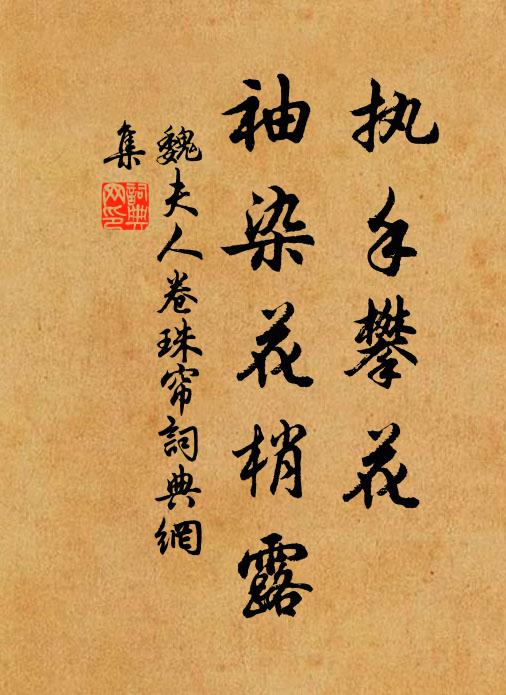 执手攀花
袖染花梢露
魏夫人卷珠帘詞典網
集
詞典网印